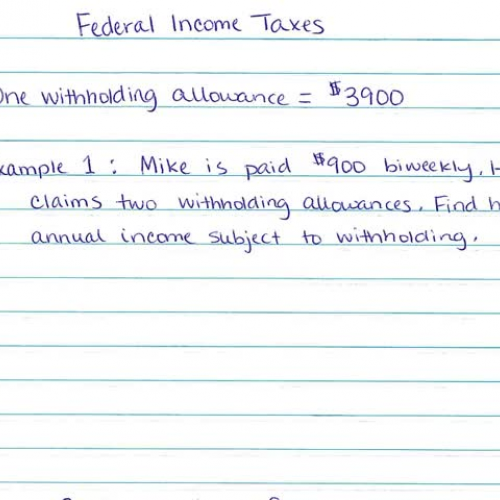 Federal Income Taxes
One withholding allowance = $3900
xample 1: Mike is paid $900 biweekly. H
claims two withholding allowances. Find h
annual income subject to withholding.